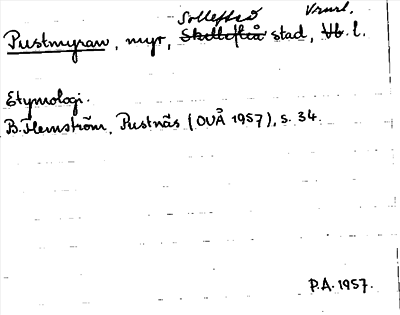 Sollefteå Vrnrl.
Pustmyran, myr, Skellefteå stad, Vb. l.
Etymologi.
B. Flemström, Pustnäs (OUÅ 1957), s. 34.
P.A. 1957.